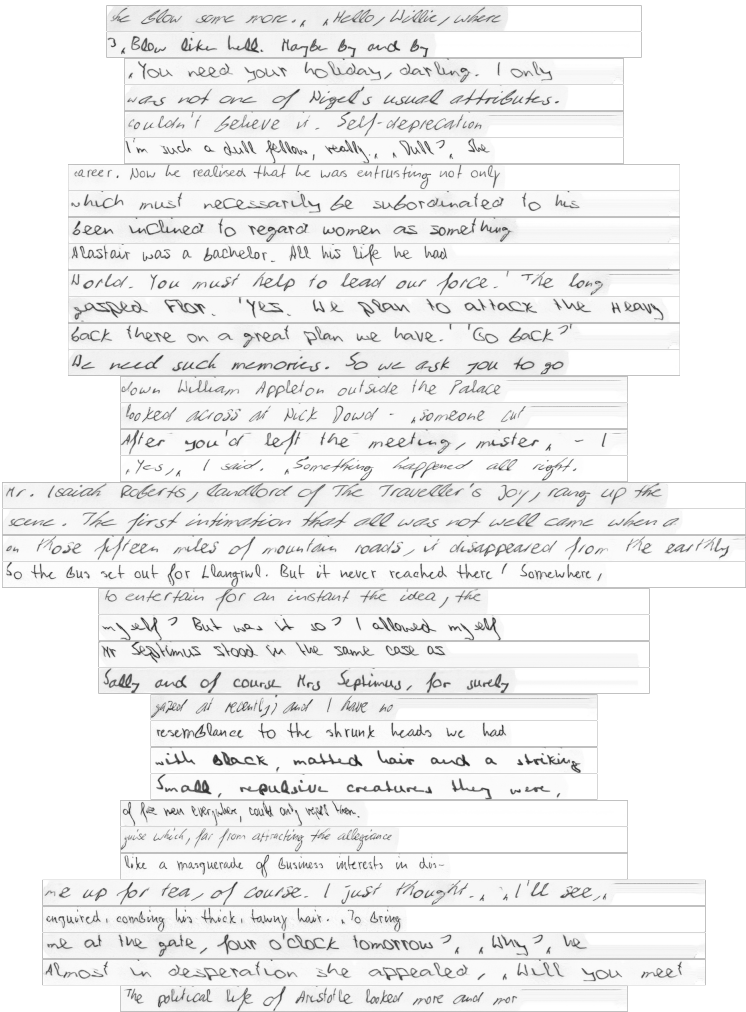 he blow some more. " "Hello, Willie, where
3, Blow like hell. Maybe by and by
"You need your holiday, darling. I only
was not one of Nigel's usual attributes.
couldn't believe it. Self-deprecation
I'm such a dull fellow, really," "Dull?" She
career. Now he realised that he was entrusting not only
which must necessarily be subordinated to his
been inclined to regard women as something
Alastair was a bachelor. All his life he had
World. You must help to lead our force.' The long
gasped Flor. 'Yes. We plan to attack the Heavy
back there on a great plan we have.' 'Go back?'
We need such memories. So we ask you to go
down William Appleton outside the Palace
looked across at Nick Dowd - "someone cut
After you'd left the meeting, mister" - I
"Yes," I said. "Something happened all right.
Mr. Isaiah Roberts, landlord of The Traveller's Joy, rang up the
scene. The first intimation that all was not well came when a
on those fifteen miles of mountain roads, it disappeared from the earthly
So the Bus set out for Llangrwl. But it never reached there! Somewhere,
to entertain for an instant the idea, the
myself? But was it so? I allowed myself
Mr Septimus stood in the same case as
Sally and of course Mrs Septimus, for surely
gazed at recently; and I have no
resemblance to the shrunk heads we had
with black, matted hair and a striking
Small, repulsive creatures they were,
of free men everywhere, could only repel them.
guise which, far from attracting the allegiance
like a masquerade of Business interests in dis-
me up for tea, of course. I just thought." "I'll see,"
enquired, combing his thick, tawny hair. "To bring
me at the gate, four o'clock tomorrow?" "Why?" he
Almost in desperation she appealed, "Will you meet
The political life of Aristotle looked more and mor